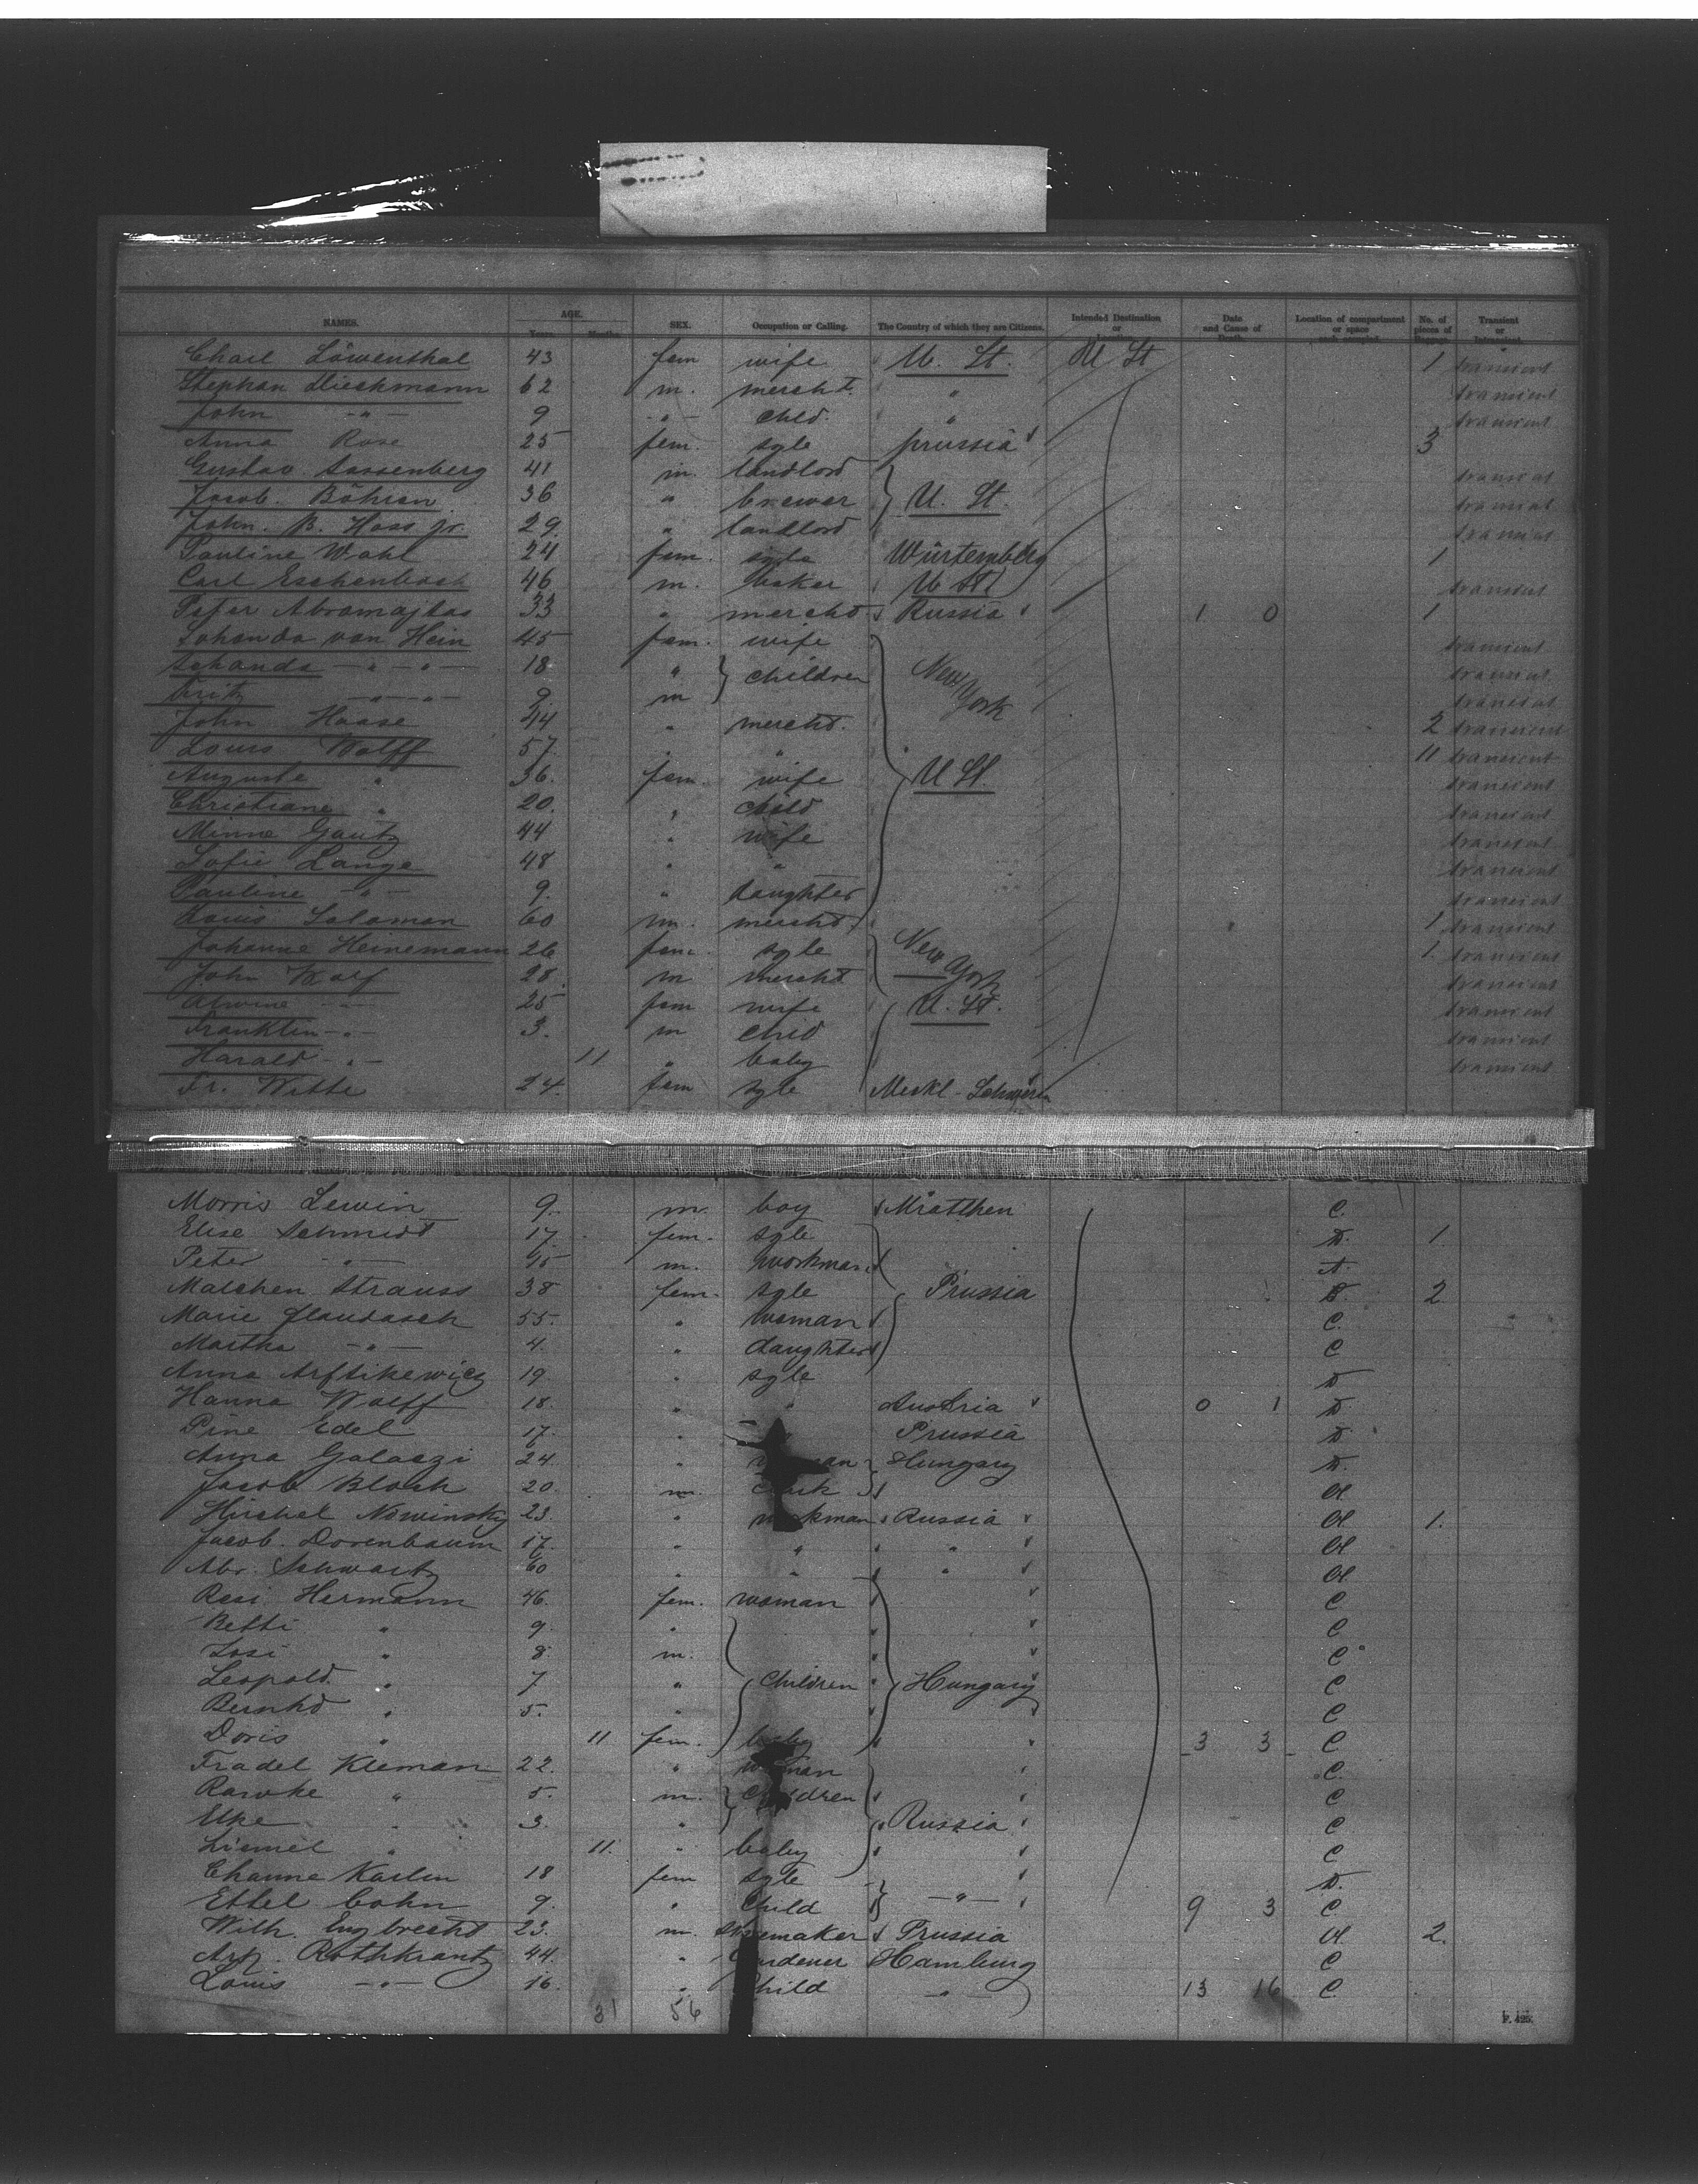 NAMES. AGE. SEX. Occupation or Calling. The Country of which they are Citizens. Intended Destination or Date and Cause of Death. Location of compartment or space No. of pieces of Transient or
Years Months
Chail Löwenthal 43 fem wife U. St. U St 1 transient
Stephan 62 m. mercht. " transient
John - " - 9 - " - chld. " transient
Anna Rose 25 fem. sgle prussia 3
Gustav Sassenberg 41 m. landlord transient
Jacob. Böhien 36 " brewer U. St. transient
John. B. Hass jr. 29. " landlord transient
Pauline Wahl 24 fem. sgle Würtemberg 1
Carl Eschenbach 46 m. baker U St transient
Peter Abromajtas 33 " mercht Russia 1 0 1
Johanda von Hein 45 fem. wife transient
Johanda - " - " - 18 " children New York transient
Fritz - " - " - 9 m transient
John Haase 44 " mercht. 2 transient
Louis Wolff 57. " " 11 transient
Auguste " 36. fem. wife U St. transient
Christiane " 20. " child transient
Minna Gautz 44 " wife transient
Sofie Lange 48 " " transient
Pauline - " - 9. " daughter transient
Louis Salomon 60 m. mercht. 1 transient
Johanne Heinemann 26 fem. sgle New York 1. transient
John Wolf 28. m mercht transient
Alwine - " - 25 fem wife U. St. transient
Franklin - " - 3. m child transient
Harald - " - 11 " baby transient
Fr. Witte 24. fem sgle Meckl-Schwerin
Morris Lewin 9. m. boy C.
Elise Schmidt 17. fem. sgle D. 1.
Peter - " - m. workman A.
Malchen Strauss 38 fem. sgle Prussia D. 2
Marie 55. " woman C.
Martha - " - 4. " daughter C
Anna Arftikewicz 19. " sgle D
Hanna Wolff 18. " " Austria 0 1 D.
Pine Edel 17. " Prussia D
Anna Galaczi 24. " Hungary D.
Jacob Bloch 20. m. A
Hirchel Nowinsky 23. " workman Russia A 1.
Jacob. Dorenbaum 17. " " " A
Abr. Schwartz 60 " " " A
Resi Hermann 46. fem. woman C
Betti " 9. " C
Josi " 8. m. C
Leopold " 7. " Children Hungary C
Bernhd " 5. " C
Doris " 11 fem. baby 3 3 C
Fradel Kleman 22. " woman C.
Rawke " 5. m. Children C
Elke " 3. " Russia C
" 11. " baby C
Channe Karlin 18 fem sgle D.
Ettel Cohn 9. " Child - " - 9 3 C
Wilh. Engbrecht 23. m. shoemaker Prussia A 2.
Arp. Rothkrantz 44. " Gardener Hamburg C
Louis - " - 16. " Child - " - 13 16 C
31 56
F. 425.